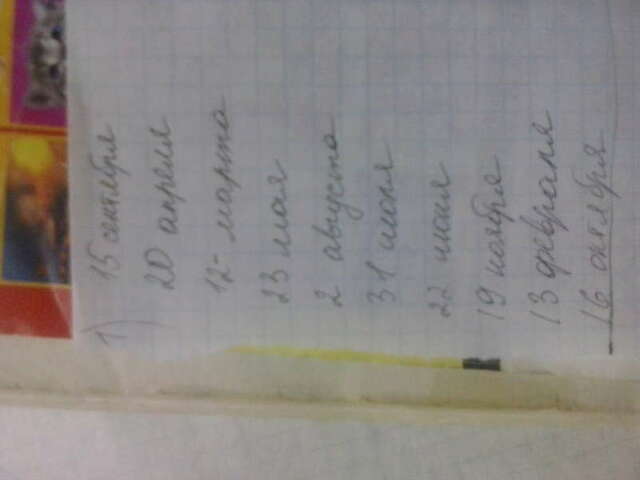 1) 15 сентября
20 апреля
12- марта
23 мая
2 августа
31 июля
22 июня
19 ноября
13 февраля
16 октября